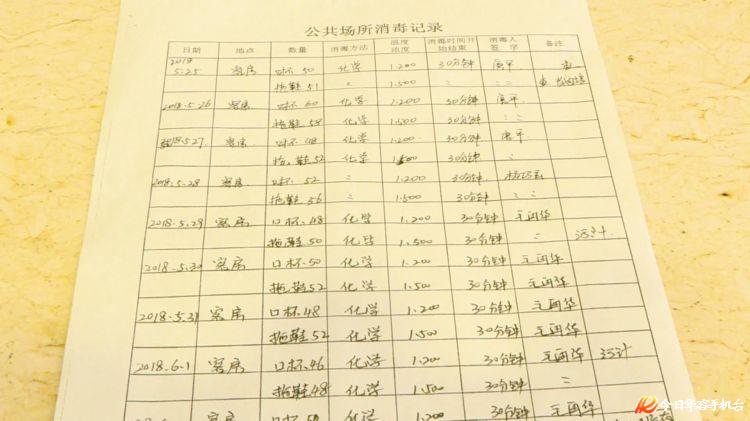 公共场所消毒记录
日期 地点 数量 消毒方法 温度浓度 消毒时间开始结束 消毒人签字 备注
2018 5.25 客房 口杯 50 化学 1.200 30分钟 唐平
拖鞋 51 〃 1.500 〃 〃
2018.5.26 客房 口杯 60 化学 1.200 30分钟 唐平
拖鞋 58 化学 1.500 30分钟 〃
2018.5.27 客房 口杯 48 化学 1.200 30分钟 唐平
拖鞋 52 化学 30分钟 〃
2018.5.28 客房 口杯 52 〃 1.200 30分钟
拖鞋 56 〃 1.500 〃 〃
2018.5.29 客房 口杯.48 化学 1.200 30分钟
拖鞋.50 化学 1.500 30分钟 〃
2018.5.30 客房 口杯.50 化学 1.200 30分钟
拖鞋52 化学 1.500 30分钟
2018.5.31 客房 口杯.48 化学 1.200 30分钟
拖鞋52 化学 1.500 30分钟
2018.6.1 客房 口杯.46 化学 1.200 30分钟
拖鞋48 化学 1.500 30分钟 〃
客房 口杯 化学 1.200 30分钟
今日华容手机台